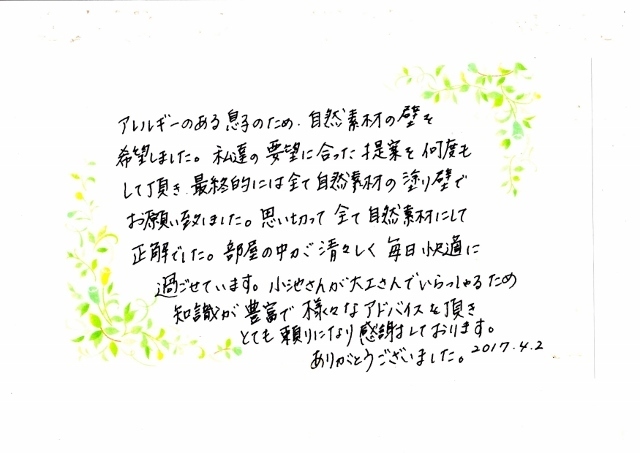 アレルギーのある息子のため、自然素材の壁を
希望しました。私達の要望に合った提案を何度も
して頂き、最終的には全て自然素材の塗り壁で
お願い致しました。思い切って全て自然素材にして
正解でした。部屋の中が清々しく毎日快適に
過ごせています。小池さんが大工さんでいらっしゃるため
知識が豊富で様々なアドバイスを頂き
とても頼りになり感謝しております。
ありがとうございました。2017.4.2